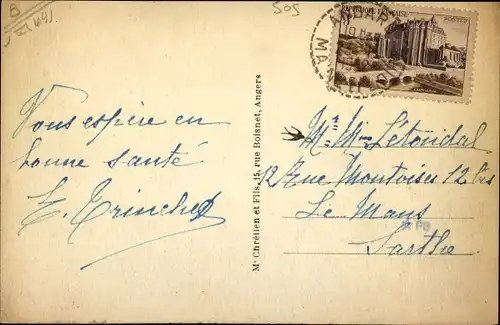 505
RÉPUBLIQUE FRANÇAISE
POSTES
Vous espère en
bonne santé
E. Trinchet
Mon Chrétien et Fils, 15, rue Boisnet, Angers
Mr Mme Létondal
12 Rue Montoises 12 bis
Le Mans
Sarthe